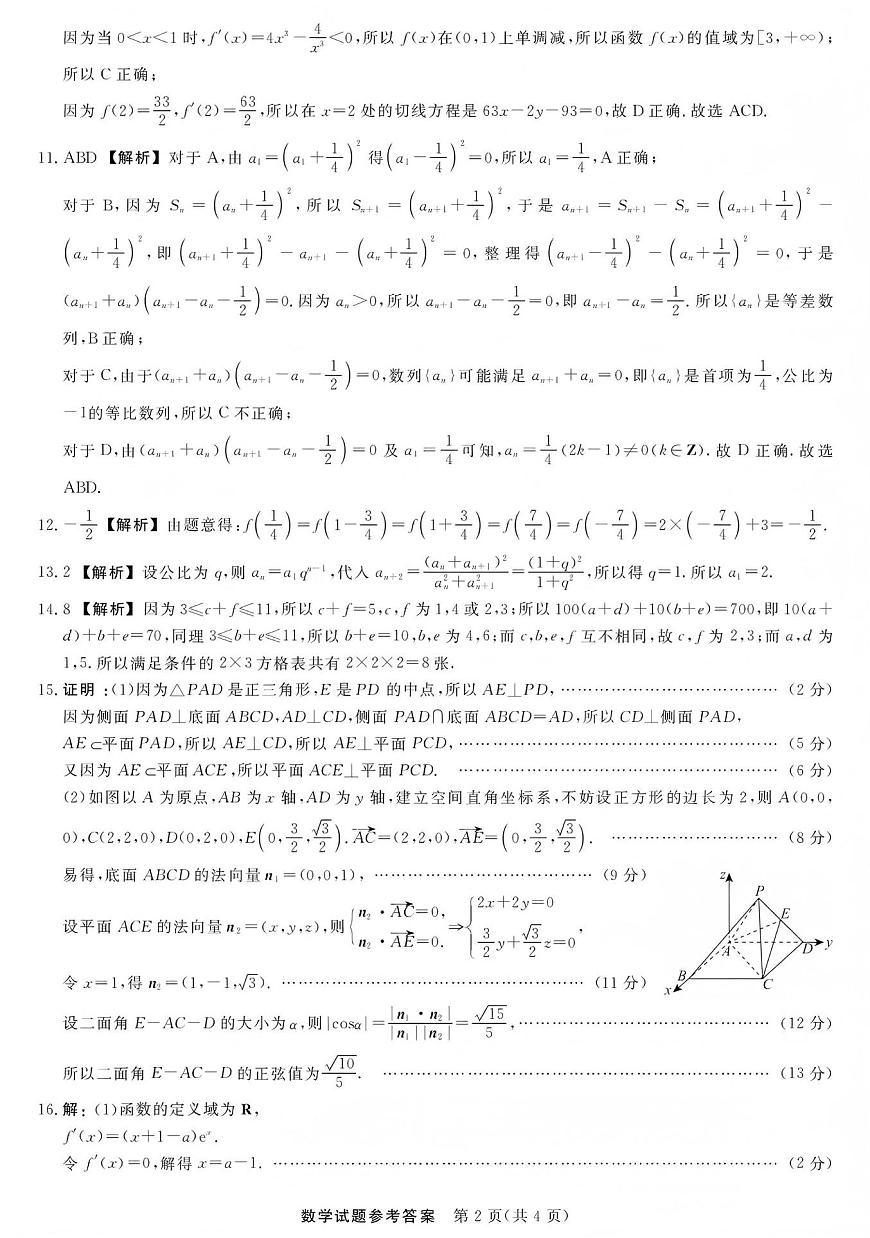 因为当 0<x<1 时,f′(x)=4x³－4/x³<0,所以 f(x)在(0,1)上单调减,所以函数 f(x)的值域为[3,+∞);
所以 C 正确;
因为 f(2)=33/2,f′(2)=63/2,所以在 x=2 处的切线方程是 63x－2y－93=0,故 D 正确.故选 ACD.
11. ABD 【解析】对于 A,由 a₁=(a₁+1/4)² 得(a₁－1/4)²=0,所以 a₁=1/4,A 正确;
对于 B,因为 Sₙ=(aₙ+1/4)²,所以 Sₙ₊₁=(aₙ₊₁+1/4)²,于是 aₙ₊₁=Sₙ₊₁－Sₙ=(aₙ₊₁+1/4)²－
(aₙ+1/4)²,即(aₙ₊₁+1/4)²－aₙ₊₁－(aₙ+1/4)²=0,整理得(aₙ₊₁－1/4)²－(aₙ+1/4)²=0,于是
(aₙ₊₁+aₙ)(aₙ₊₁－aₙ－1/2)=0.因为 aₙ>0,所以 aₙ₊₁－aₙ－1/2=0,即 aₙ₊₁－aₙ=1/2.所以{aₙ}是等差数
列,B 正确;
对于 C,由于(aₙ₊₁+aₙ)(aₙ₊₁－aₙ－1/2)=0,数列{aₙ}可能满足 aₙ₊₁+aₙ=0,即{aₙ}是首项为1/4,公比为
－1的等比数列,所以 C 不正确;
对于 D,由(aₙ₊₁+aₙ)(aₙ₊₁－aₙ－1/2)=0 及 a₁=1/4可知,aₙ=1/4(2k－1)≠0(k∈Z).故 D 正确.故选
ABD.
12. －1/2 【解析】由题意得:f(1/4)=f(1－3/4)=f(1+3/4)=f(7/4)=f(－7/4)=2×(－7/4)+3=－1/2.
13. 2 【解析】设公比为 q,则 aₙ=a₁qⁿ⁻¹,代入 aₙ₊₂=(aₙ+aₙ₊₁)²/(aₙ²+aₙ₊₁²)=(1+q)²/(1+q²),所以得 q=1.所以 a₁=2.
14. 8 【解析】因为 3≤c+f≤11,所以 c+f=5,c,f 为 1,4 或 2,3;所以 100(a+d)+10(b+e)=700,即 10(a+
d)+b+e=70,同理 3≤b+e≤11,所以 b+e=10,b,e 为 4,6;而 c,b,e,f 互不相同,故 c,f 为 2,3;而 a,d 为
1,5.所以满足条件的 2×3 方格表共有 2×2×2=8 张.
15. 证明:(1)因为△PAD 是正三角形,E 是 PD 的中点,所以 AE⊥PD, …………………………………(2 分)
因为侧面 PAD⊥底面 ABCD,AD⊥CD,侧面 PAD∩底面 ABCD=AD,所以 CD⊥侧面 PAD,
AE⊂平面 PAD,所以 AE⊥CD,所以 AE⊥平面 PCD, …………………………………………………(5 分)
又因为 AE⊂平面 ACE,所以平面 ACE⊥平面 PCD. …………………………………………………(6 分)
(2)如图以 A 为原点,AB 为 x 轴,AD 为 y 轴,建立空间直角坐标系,不妨设正方形的边长为 2,则 A(0,0,
0),C(2,2,0),D(0,2,0),E(0,3/2,√3/2).AC→=(2,2,0),AE→=(0,3/2,√3/2). …………………………(8 分)
易得,底面 ABCD 的法向量 n₁=(0,0,1), …………………………………(9 分)
设平面 ACE 的法向量 n₂=(x,y,z),则{n₂·AC→=0, n₂·AE→=0. ⇒{2x+2y=0 3/2y+√3/2z=0 ,
令 x=1,得 n₂=(1,－1,√3). ………………………………………………(11 分)
设二面角 E－AC－D 的大小为 α,则|cosα|=|n₁·n₂|/|n₁||n₂|=√15/5, ………………………………………(12 分)
所以二面角 E－AC－D 的正弦值为√10/5. ……………………………………………………………(13 分)
z
P
E
A
D
y
B
x
C
16. 解:(1)函数的定义域为 R,
f′(x)=(x+1－a)eˣ.
令 f′(x)=0,解得 x=a－1. ………………………………………………………………………………(2 分)
数学试题参考答案 第 2 页(共 4 页)